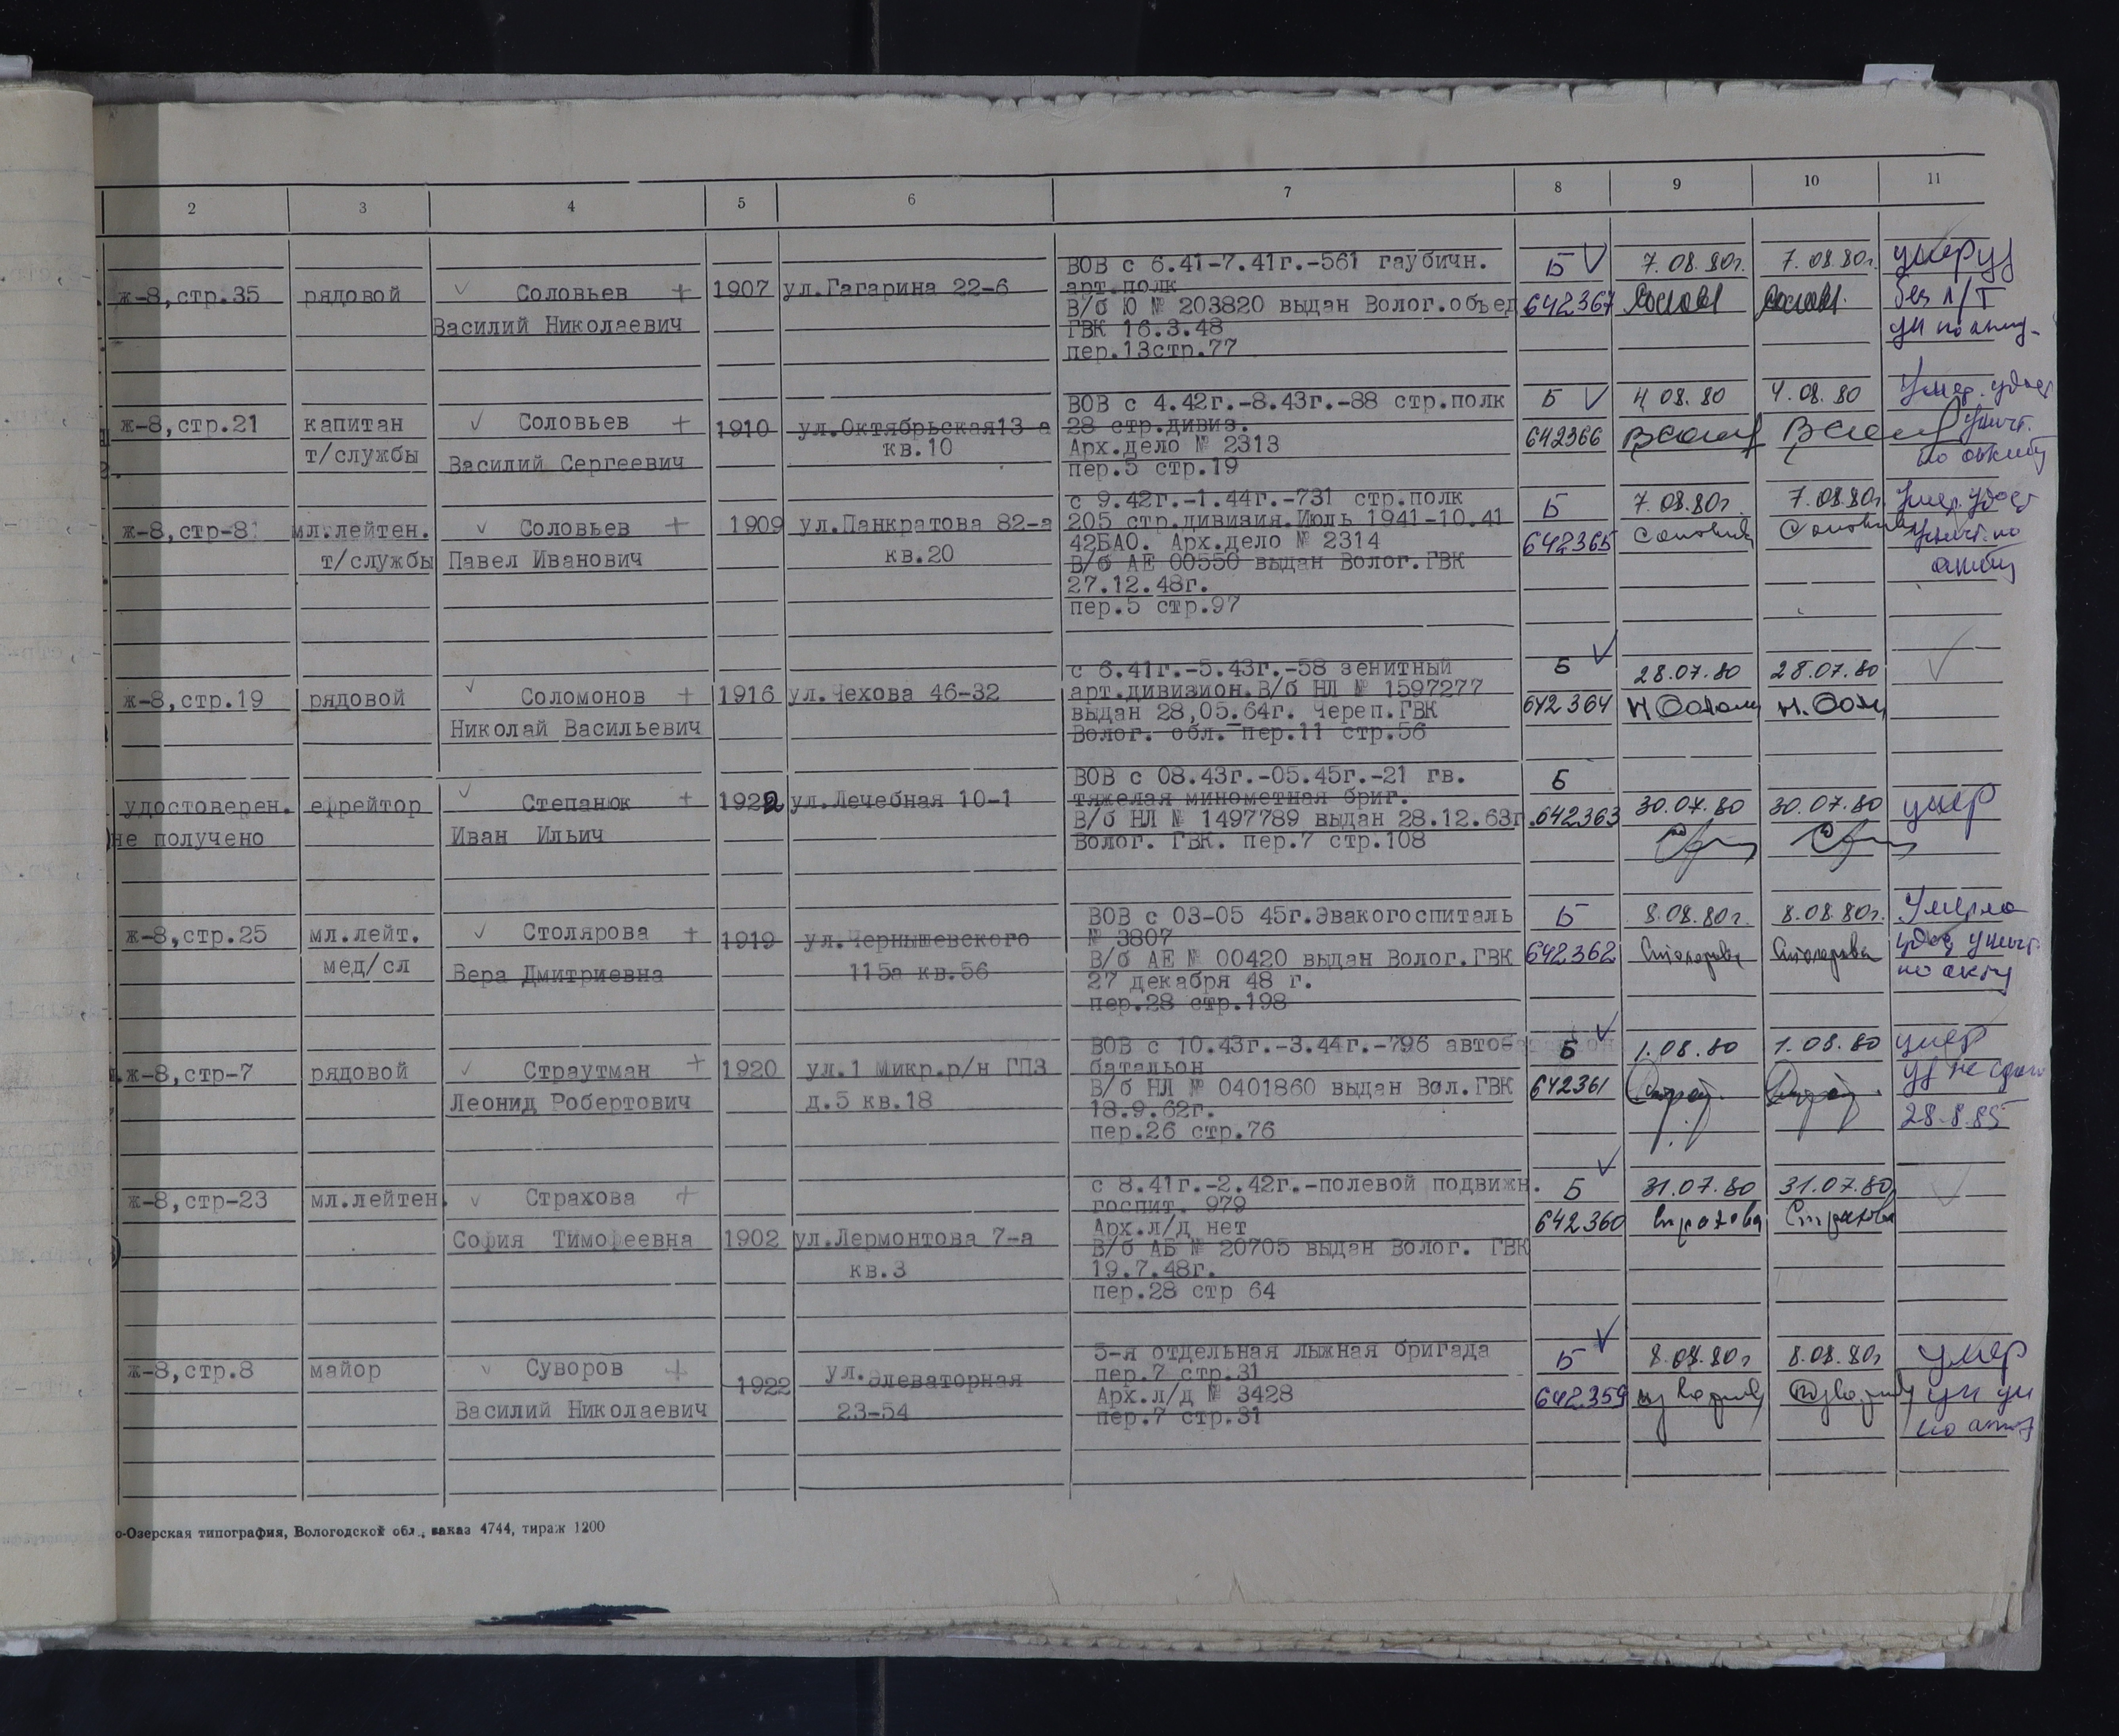 2 3 4 5 6 7 8 9 10 11
ВОВ с 6.41-7.41г.-561 гаубичн. Б 7.08.80г. 7.08.80г.
ж-8,стр.35 рядовой Соловьев + 1907 ул.Гагарина 22-6 арт.полк
В/б Ю № 203820 выдан Волог.объед 642367 без
Василий Николаевич ГВК 16.3.48
пер.13стр.77
ВОВ с 4.42г.-8.43г.-88 стр.полк Б 4 08.80 4.08.80 Умер.
ж-8,стр.21 капитан Соловьев + 1910 ул.Октябрьская13-а 28 стр.дивиз.
т/службы кв.10 Арх.дело № 2313 642366
Василий Сергеевич пер.5 стр.19
с 9.42г.-1.44г.-731 стр.полк Б 7.08.80г. 7.08.80г. Умер.
ж-8,стр-81 мл.лейтен. Соловьев + 1909 ул.Панкратова 82-а 205 стр.дивизия.Июль 1941-10.41
т/службы Павел Иванович кв.20 42БАО. Арх.дело № 2314 642365
В/б АЕ 00550 выдан Волог.ГВК
27.12.48г.
пер.5 стр.97
с 6.41г.-5.43г.-58 зенитный Б 28.07.80 28.07.80
ж-8,стр.19 рядовой Соломонов + 1916 ул.Чехова 46-32 арт.дивизион.В/б НЛ № 1597277
выдан 28,05.64г. Череп.ГВК 642364
Николай Васильевич Волог. обл. пер.11 стр.56
ВОВ с 08.43г.-05.45г.-21 гв. Б
удостоверен. ефрейтор Степанюк + 1922 ул.Лечебная 10-1 тяжелая минометная бриг. 30.07.80 30.07.80 умер
В/б НЛ № 1497789 выдан 28.12.63г. 642363
не получено Иван Ильич Волог. ГВК. пер.7 стр.108
ВОВ с 03-05 45г.Эвакогоспиталь Б 8.08.80г. 8.08.80г. Умерла
ж-8,стр.25 мл.лейт. Столярова + 1919 ул.Чернышевского № 3807
В/б АЕ № 00420 выдан Волог.ГВК 642362 Столярова Столярова
мед/сл Вера Дмитриевна 115а кв.56 27 декабря 48 г. по акту
пер.28 стр.198
ВОВ с 10.43г.-3.44г.-796 автоб Б 1.08.80 1.08.80 умер
ж-8,стр-7 рядовой Страутман + 1920 ул.1 Микр.р/н ГПЗ батальон
В/б НЛ № 0401860 выдан Вол.ГВК 642361
Леонид Робертович д.5 кв.18 18.9.62г. 28.8.85
пер.26 стр.76
с 8.41г.-2.42г.-полевой подвижн. Б 31.07.80 31.07.80
ж-8,стр-23 мл.лейтен. Страхова + госпит. 979
Арх.л/д нет 642360 Страхова Страхова
София Тимофеевна 1902 ул.Лермонтова 7-а В/б АБ № 20705 выдан Волог. ГВК
кв.3 19.7.48г.
пер.28 стр 64
5-я отдельная лыжная бригада Б 8.08.80г 8.08.80г умер
ж-8,стр.8 майор Суворов + 1922 ул.Элеваторная пер.7 стр.31
Арх.л/д № 3428 642359
Василий Николаевич 23-54 пер.7 стр.31
о-Озерская типография, Вологодской обл., заказ 4744, тираж 1200